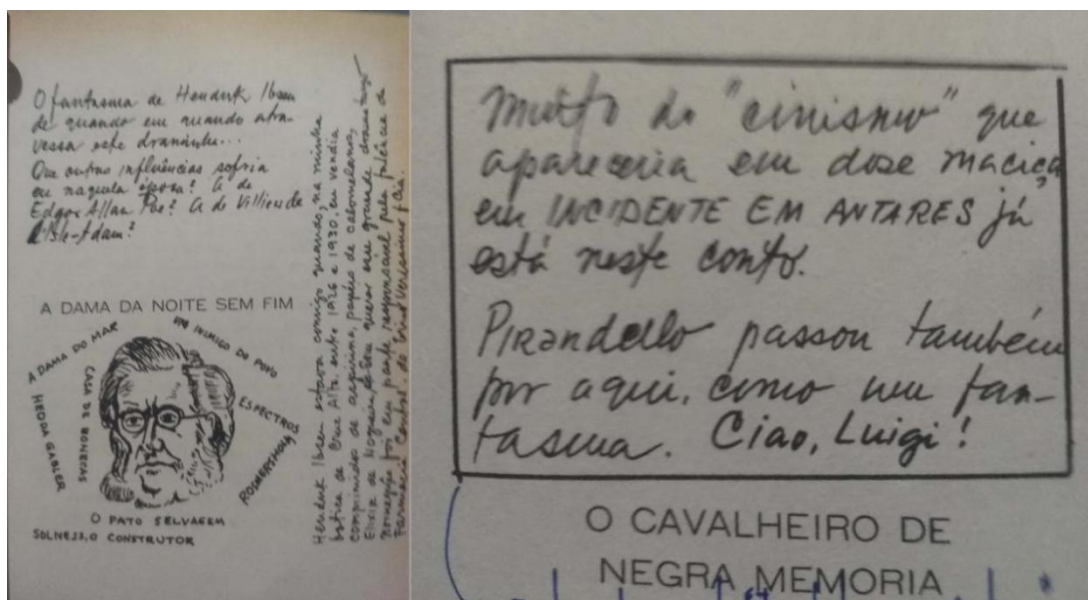 O fantasma de Hendrik Ibsen
de quando em quando atra-
vessa este draminha...
Que outras influências sofria
eu naquela época? A de
Edgar Allan Poe? A de Villiers de
L'Isle-Adam?
A DAMA DA NOITE SEM FIM
A DAMA DO MAR
UM INIMIGO DO POVO
CASA DE BONECAS
HEDDA GABLER
ESPECTROS
ROSMERSHOLM
O PATO SELVAGEM
SOLNESS, O CONSTRUTOR
Hendrik Ibsen estava comigo quando, na minha
botica de Cruz Alta, entre 1926 e 1930, eu vendia
comprimidos de aspirina, papéis de calomelanos,
Elixir de Nogueira. Sem querer esse grande dramaturgo
norueguês foi em parte responsável pela falência da
Farmácia Central, de Erico Verissimo & Cia.
Muito do "cinismo" que
apareceria em dose maciça
em INCIDENTE EM ANTARES já
está neste conto.
Pirandello passou também
por aqui, como um fan-
tasma. Ciao, Luigi!
O CAVALHEIRO DE
NEGRA MEMORIA